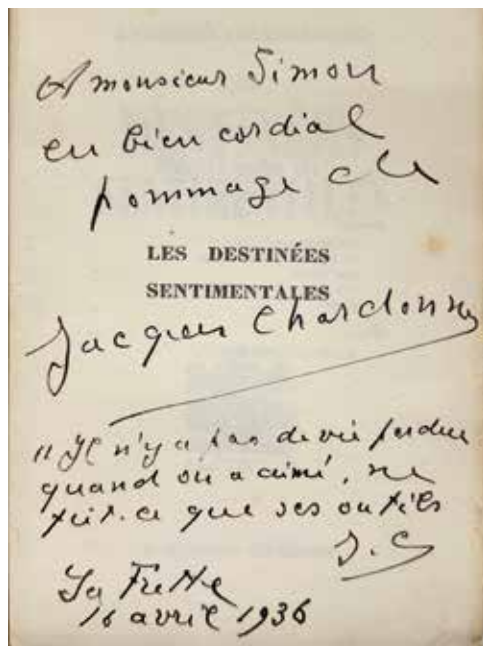 A monsieur Simon
en bien cordial
hommage de
LES DESTINÉES
SENTIMENTALES
Jacques Chardonne
" Il n'y a pas de vie perdue
quand on a aimé, ne
fût-ce que ses outils
J. C
La Frette
16 avril 1936